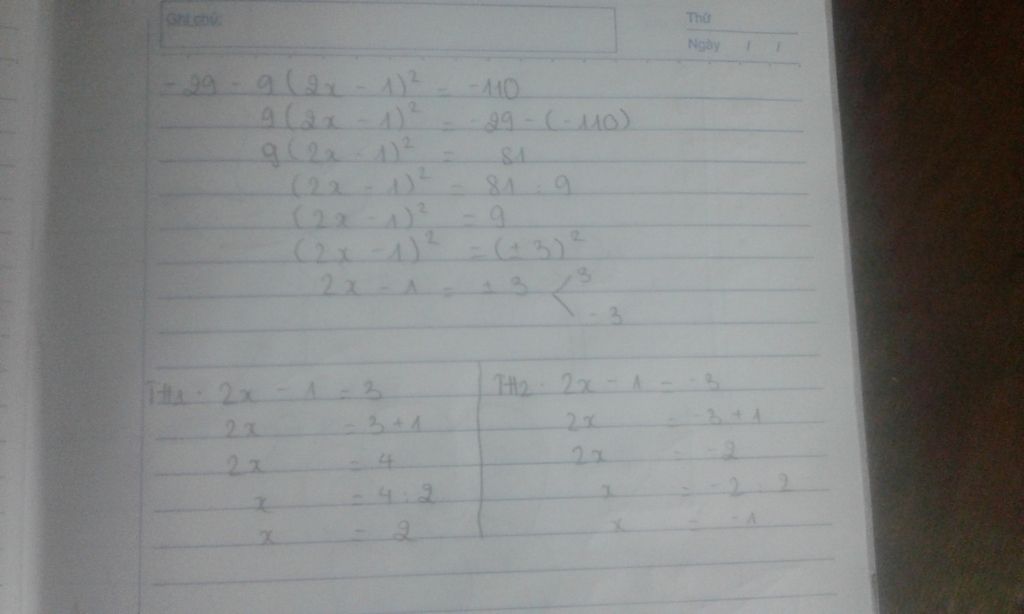 Ghi chú:
Thứ
Ngày / /
-29 - 9(2x - 1)² = -110
9(2x - 1)² = -29 - (-110)
9(2x - 1)² = 81
(2x - 1)² = 81 : 9
(2x - 1)² = 9
(2x - 1)² = (±3)²
2x - 1 = ±3 < 3
-3
TH1: 2x - 1 = 3
2x = 3 + 1
2x = 4
x = 4 : 2
x = 2
TH2: 2x - 1 = -3
2x = -3 + 1
2x = -2
x = -2 : 2
x = -1